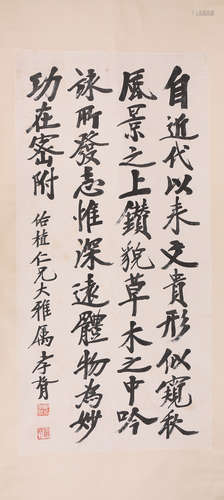 自近代以来文貴形似窺秋
風景之上鑽貌草木之中吟
詠所發志惟深遠體物為妙
功在密附 植仁兄大雅屬 孝胥